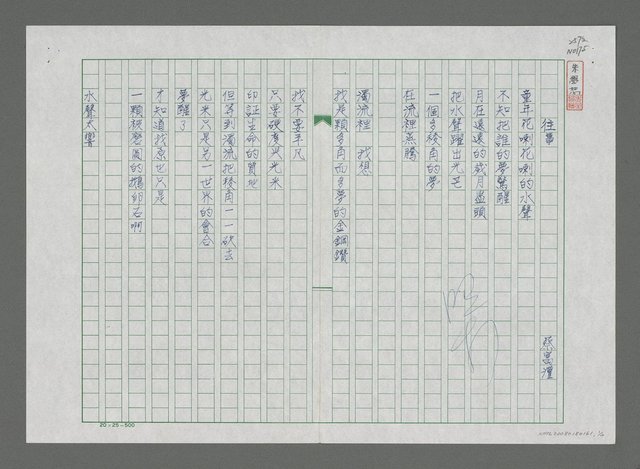 往事
童年花喇花喇的水聲
不知把誰的夢驚醒
月在遠遠的歲月盡頭
把水聲躍出光芒
一個多稜角的夢
在流裡蒸騰
濁流裡 我想
我是顆多角而多夢的金鋼鑽
我不要平凡
只要硬度與光采
印証生命的質地
但等到濁流把稜角一一砍去
光采只是另一世界的會合
夢醒了
才知道我原也只是
一顆被磨圓的鵝卵石啊
水聲太響
20×25=500